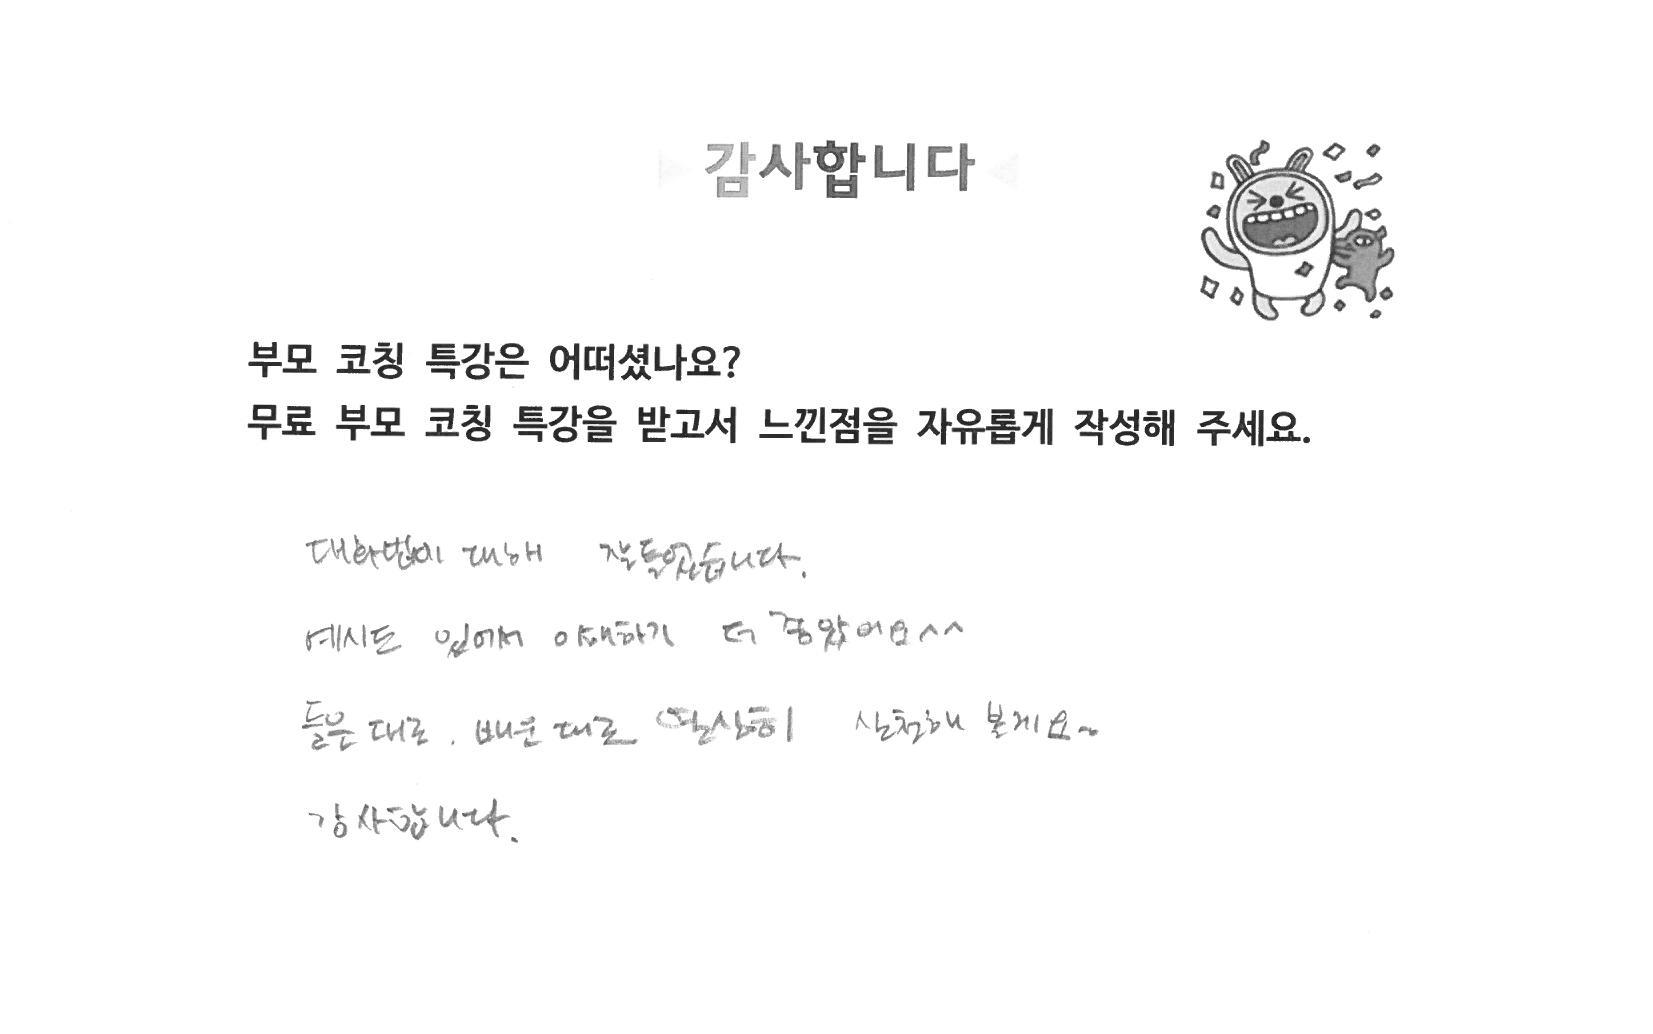 감사합니다
부모 코칭 특강은 어떠셨나요?
무료 부모 코칭 특강을 받고서 느낀점을 자유롭게 작성해 주세요.
대화법에 대해 잘들었습니다.
예시도 있어서 이해하기 더 좋았어요^^
들은 대로. 배운 대로 열심히 실천해 볼게요~
감사합니다.